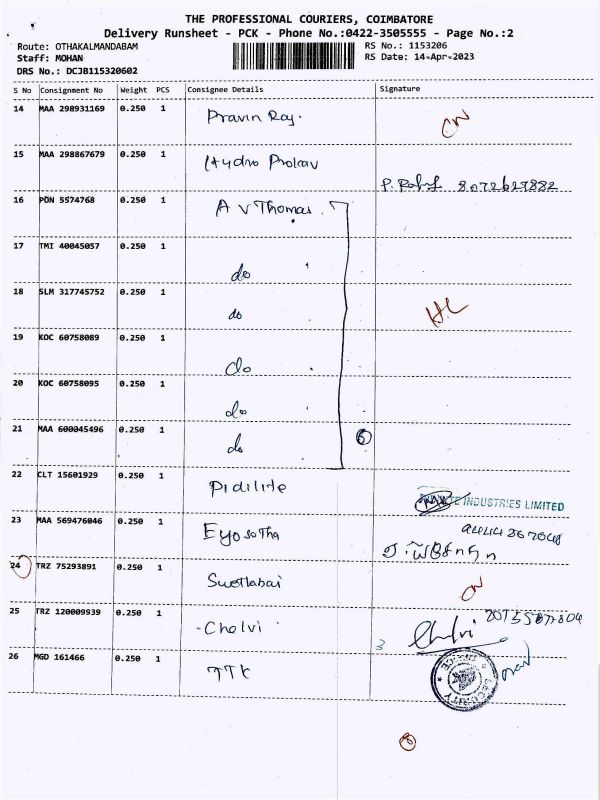 THE PROFESSIONAL COURIERS, COIMBATORE
Delivery Runsheet - PCK - Phone No.:0422-3505555 - Page No.:2
Route: OTHAKALMANDABAM
RS No.: 1153206
Staff: MOHAN
RS Date: 14-Apr-2023
DRS No.: DCJB115320602
S No Consignment No Weight PCS Consignee Details Signature
14 MAA 298931169 0.250 1 Pravin Raj.
15 MAA 298867679 0.250 1 Hydro Prokav
16 PDN 5574768 0.250 1 A V Thomas.
17 TMI 40045057 0.250 1 do
18 SLM 317745752 0.250 1 do
19 KOC 60758089 0.250 1 do
20 KOC 60758095 0.250 1 do
21 MAA 600045496 0.250 1 do 6
22 CLT 15601929 0.250 1 Pidilite INDUSTRIES LIMITED
23 MAA 569476046 0.250 1
24 TRZ 75293891 0.250 1
25 TRZ 120009939 0.250 1 Chelvi 3 Chelvi
26 MGD 161466 0.250 1 TTK SECURITY
8